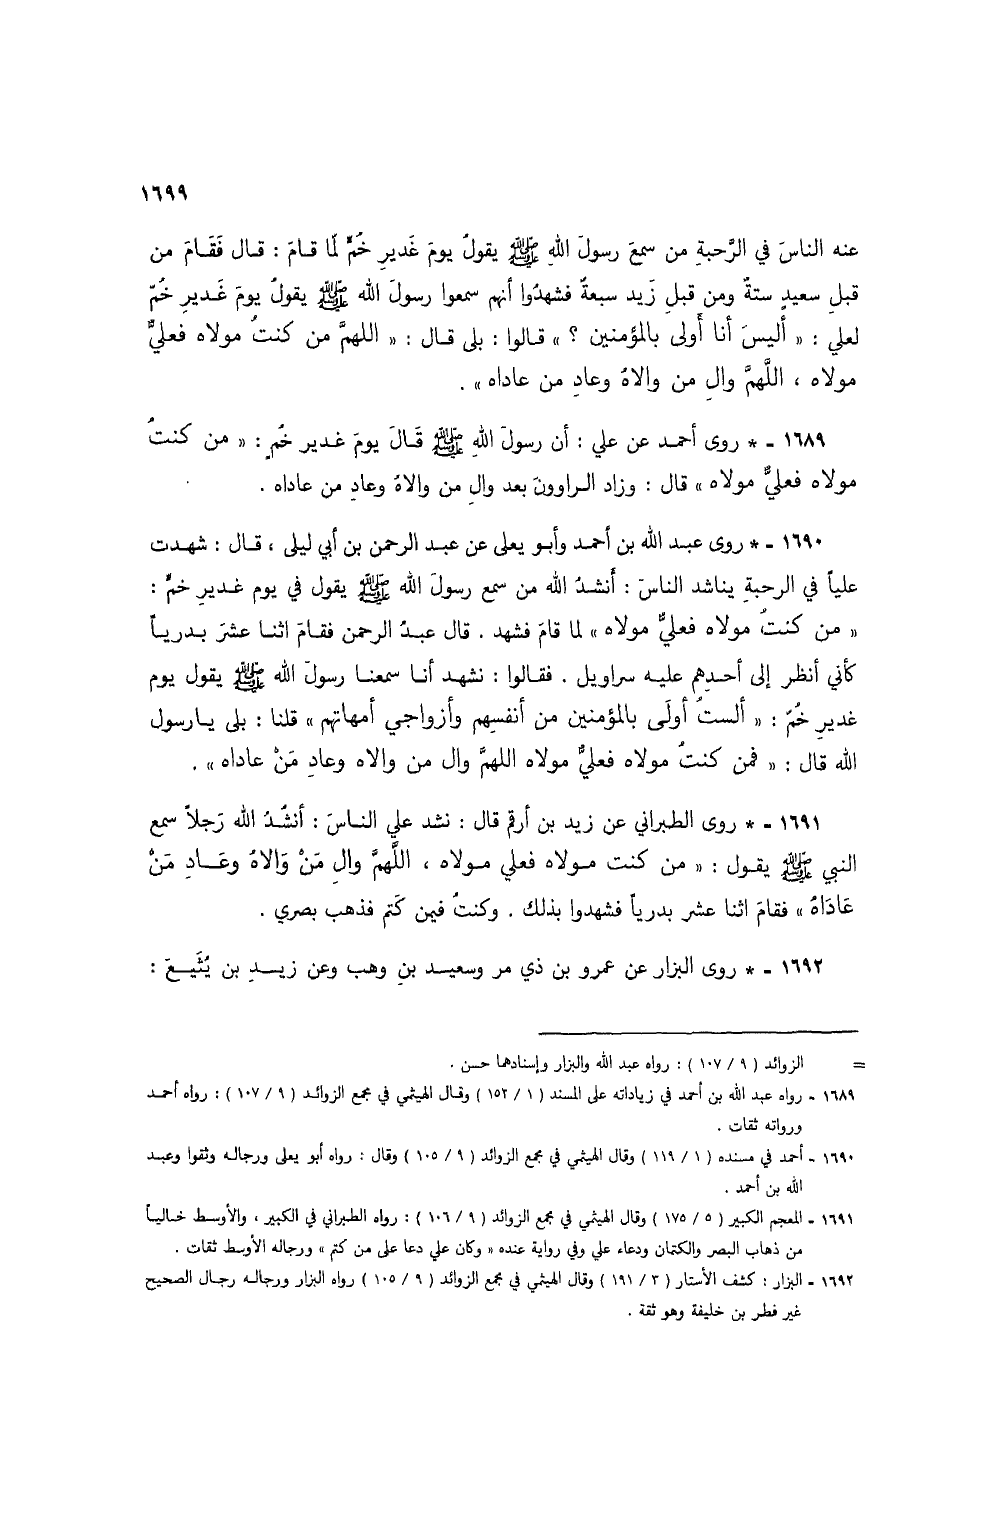 ١٦٩٩
عنه الناسَ في الرَّحبةِ من سمعَ رسولَ اللهِ ﷺ يقولُ يومَ غَديرِ خُمٍّ لَّا قـامَ : قـال فَقَـامَ من
قبلِ سعيدٍ ستةٌ ومن قبلِ زَيد سبعةٌ فشهدُوا أنهم سمعوا رسولَ الله ﷺ يقولُ يومَ غَـديرِ خُمّ
لعلي : « أليسَ أنا أَولى بالمؤمنين ؟ » قـالوا : بلى قـال : « اللهمَّ من كنتُ مولاه فعليٌّ
مولاه ، اللَّهمَّ والِ من والاهُ وعادِ من عاداه » .
١٦٨٩ - * روى أحمـد عن علي : أن رسولَ اللهِ ﷺ قَـالَ يومَ غـدير خُمٍ : « من كنتُ
مولاه فعليٌّ مولاه » قال : وزاد الـراوونَ بعد والِ من والاهُ وعادِ من عاداه .
١٦٩٠ - * روى عبـد الله بن أحمـد وأبـو يعلى عن عبـد الرحمن بن أبي ليلى ، قـال : شهـدت
علياً في الرحبةِ يناشد الناسَ : أَنشـدُ الله من سمع رسولَ الله ﷺ يقول في يوم غـديرِ خمٍّ :
« من كنتُ مولاه فعليٌّ مولاه » لما قامَ فشهد . قال عبـدُ الرحمن فقـامَ اثنـا عشرَ بـدريـاً
كأني أنظر إلى أحـدِهم عليـه سراويل . فقـالوا : نشهـد أنـا سمعنـا رسولَ الله ﷺ يقول يوم
غديرِ خُمّ : « ألستُ أولَى بالمؤمنين من أنفسِهم وأزواجي أمهاتهم » قلنا : بلى يـارسول
الله قال : « فمن كنتُ مولاه فعليٌّ مولاه اللهمَّ وال من والاه وعادِ مَنْ عاداه » .
١٦٩١ - * روى الطبراني عن زيد بن أرقم قال : نشد علي النـاسَ : أنشُدُ الله رَجلاً سمع
النبي ﷺ يقـول : « من كنت مـولاه فعلي مـولاه ، اللَّهمَّ والِ مَنْ وَالاهُ وعَــادِ مَنْ
عَادَاهُ » فقامَ اثنا عشر بدرياً فشهدوا بذلك . وكنتُ فيمن كَتم فذهب بصري .
١٦٩٢ - * روى البزار عن عمرو بن ذي مر وسعيـد بنِ وهب وعن زيـدِ بن يُثَيـعَ :
= الزوائد ( ٩ / ١٠٧ ) : رواه عبد الله والبزار وإسنادهما حسن .
١٦٨٩ - رواه عبد الله بن أحمد في زياداته على المسند ( ١ / ١٥٢ ) وقـال الهيثمي في مجمع الزوائـد ( ٩ / ١٠٧ ) : رواه أحمـد
ورواته ثقات .
١٦٩٠ - أحمد في مسنده ( ١ / ١١٩ ) وقال الهيثمي في مجمع الزوائد ( ٩ / ١٠٥ ) وقال : رواه أبو يعلى ورجالـه وثقوا وعبـد
الله بن أحمد .
١٦٩١ - المعجم الكبير ( ٥ / ١٧٥ ) وقال الهيثمي في مجمع الزوائد ( ٩ / ١٠٦ ) : رواه الطبراني في الكبير ، والأوسط خـاليـاً
من ذهاب البصر والكتمان ودعاء علي وفي رواية عنده « وكان علي دعا على من كتم » ورجاله الأوسط ثقات .
١٦٩٢ - البزار : كشف الأستار ( ٣ / ١٩١ ) وقال الهيثمي في مجمع الزوائد ( ٩ / ١٠٥ ) رواه البزار ورجالـه رجـال الصحيح
غير فطر بن خليفة وهو ثقة .